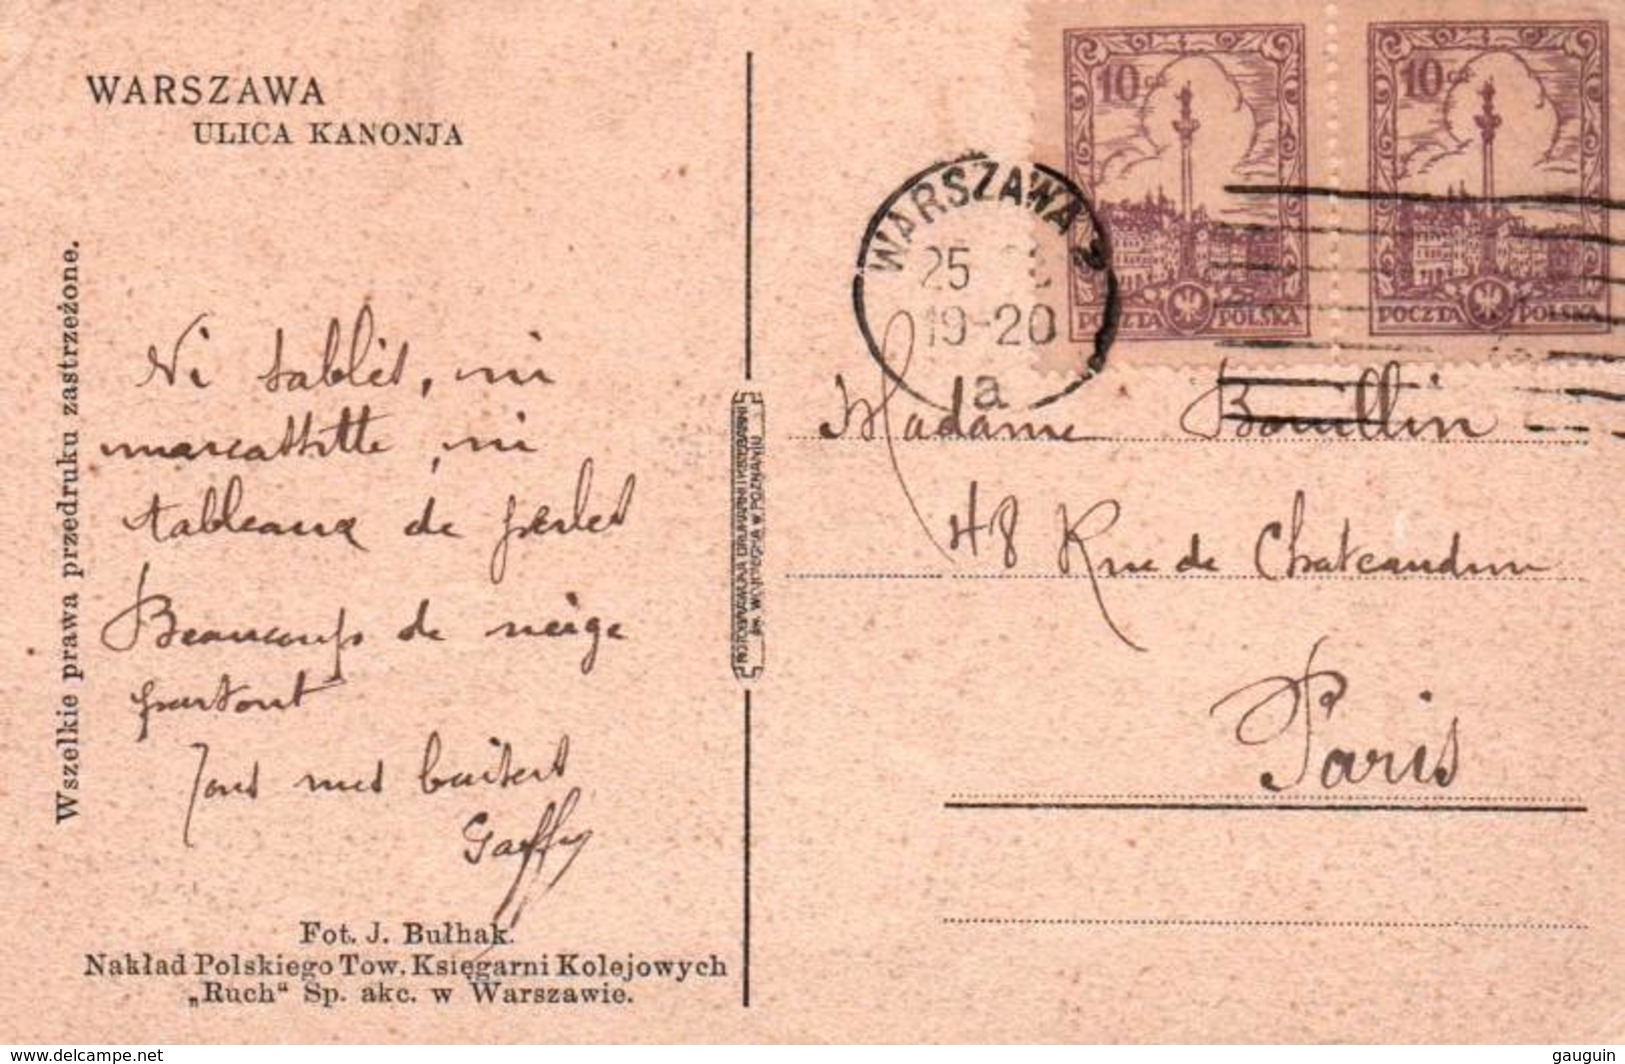 WARSZAWA
ULICA KANONJA
Wszelkie prawa przedruku zastrzeżone.
Ni sablés, ni
marcassitte, ni
tableaux de perles
Beaucoup de neige
partout
Tous mes baisers
Gaffy
Fot. J. Bułhak.
Nakład Polskiego Tow. Księgarni Kolejowych
„Ruch“ Sp. akc. w Warszawie.
ROTOGRAWJURA DRUKARNI I KSIĘGARNI
ŚW. WOJCIECHA W POZNANIU
10 gr
POCZTA POLSKA
10 gr
POCZTA POLSKA
WARSZAWA 2
25
19-20
a
Madame Bouillin
48 Rue de Chateaudun
Paris
www.delcampe.net
gauguin